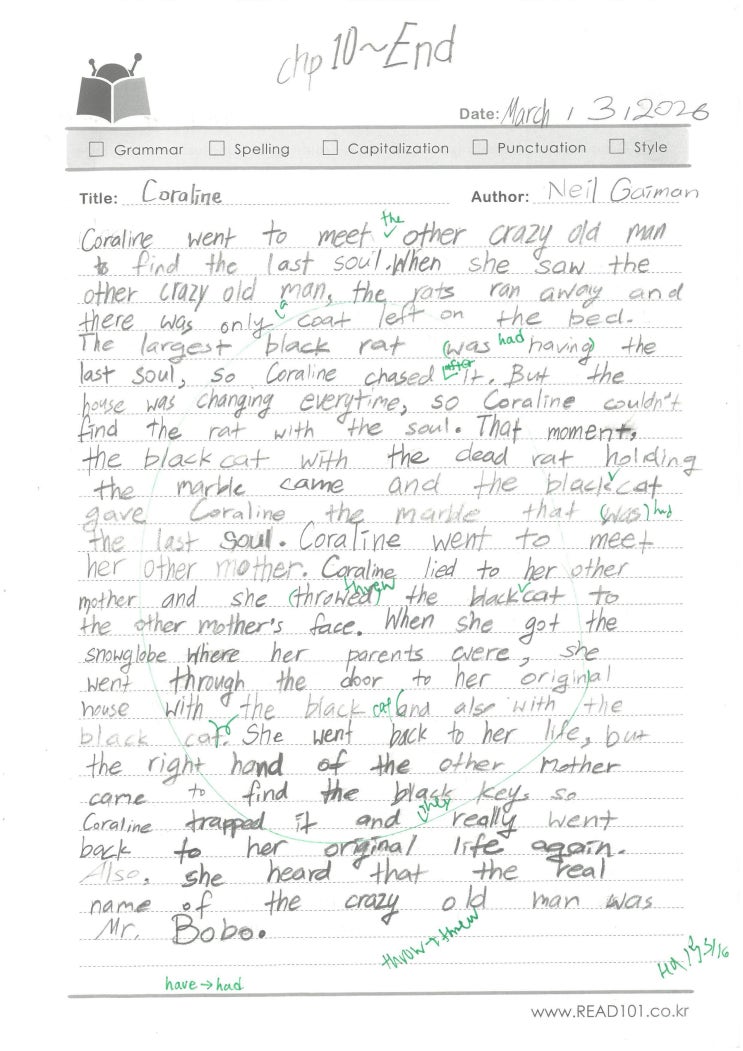 chp 10~End
Date: March / 3, 2026
Grammar Spelling Capitalization Punctuation Style
Title: Coraline Author: Neil Gaiman
the
Coraline went to meet other crazy old man
to find the last soul. When she saw the
other crazy old man, the rats ran away and
a
there was only coat left on the bed.
The largest black rat (was had having) the
after
last soul, so Coraline chased it. But the
house was changing everytime, so Coraline couldn't
find the rat with the soul. That moment,
the black cat with the dead rat holding
the marble came and the blackcat
gave Coraline the marble that (was) had
the last soul. Coraline went to meet
her other mother. Coraline lied to her other
threw
mother and she (throwed) the blackcat to
the other mother's face. When she got the
snowglobe where her parents were, she
went through the door to her original
house with the black cat (and also with the
black cat. She went back to her life, but
the right hand of the other mother
came to find the black key, so
then
Coraline trapped it and really went
back to her original life again.
Also, she heard that the real
name of the crazy old man was
Mr. Bobo.
throw→threw
3/16
have→had
www.READ101.co.kr